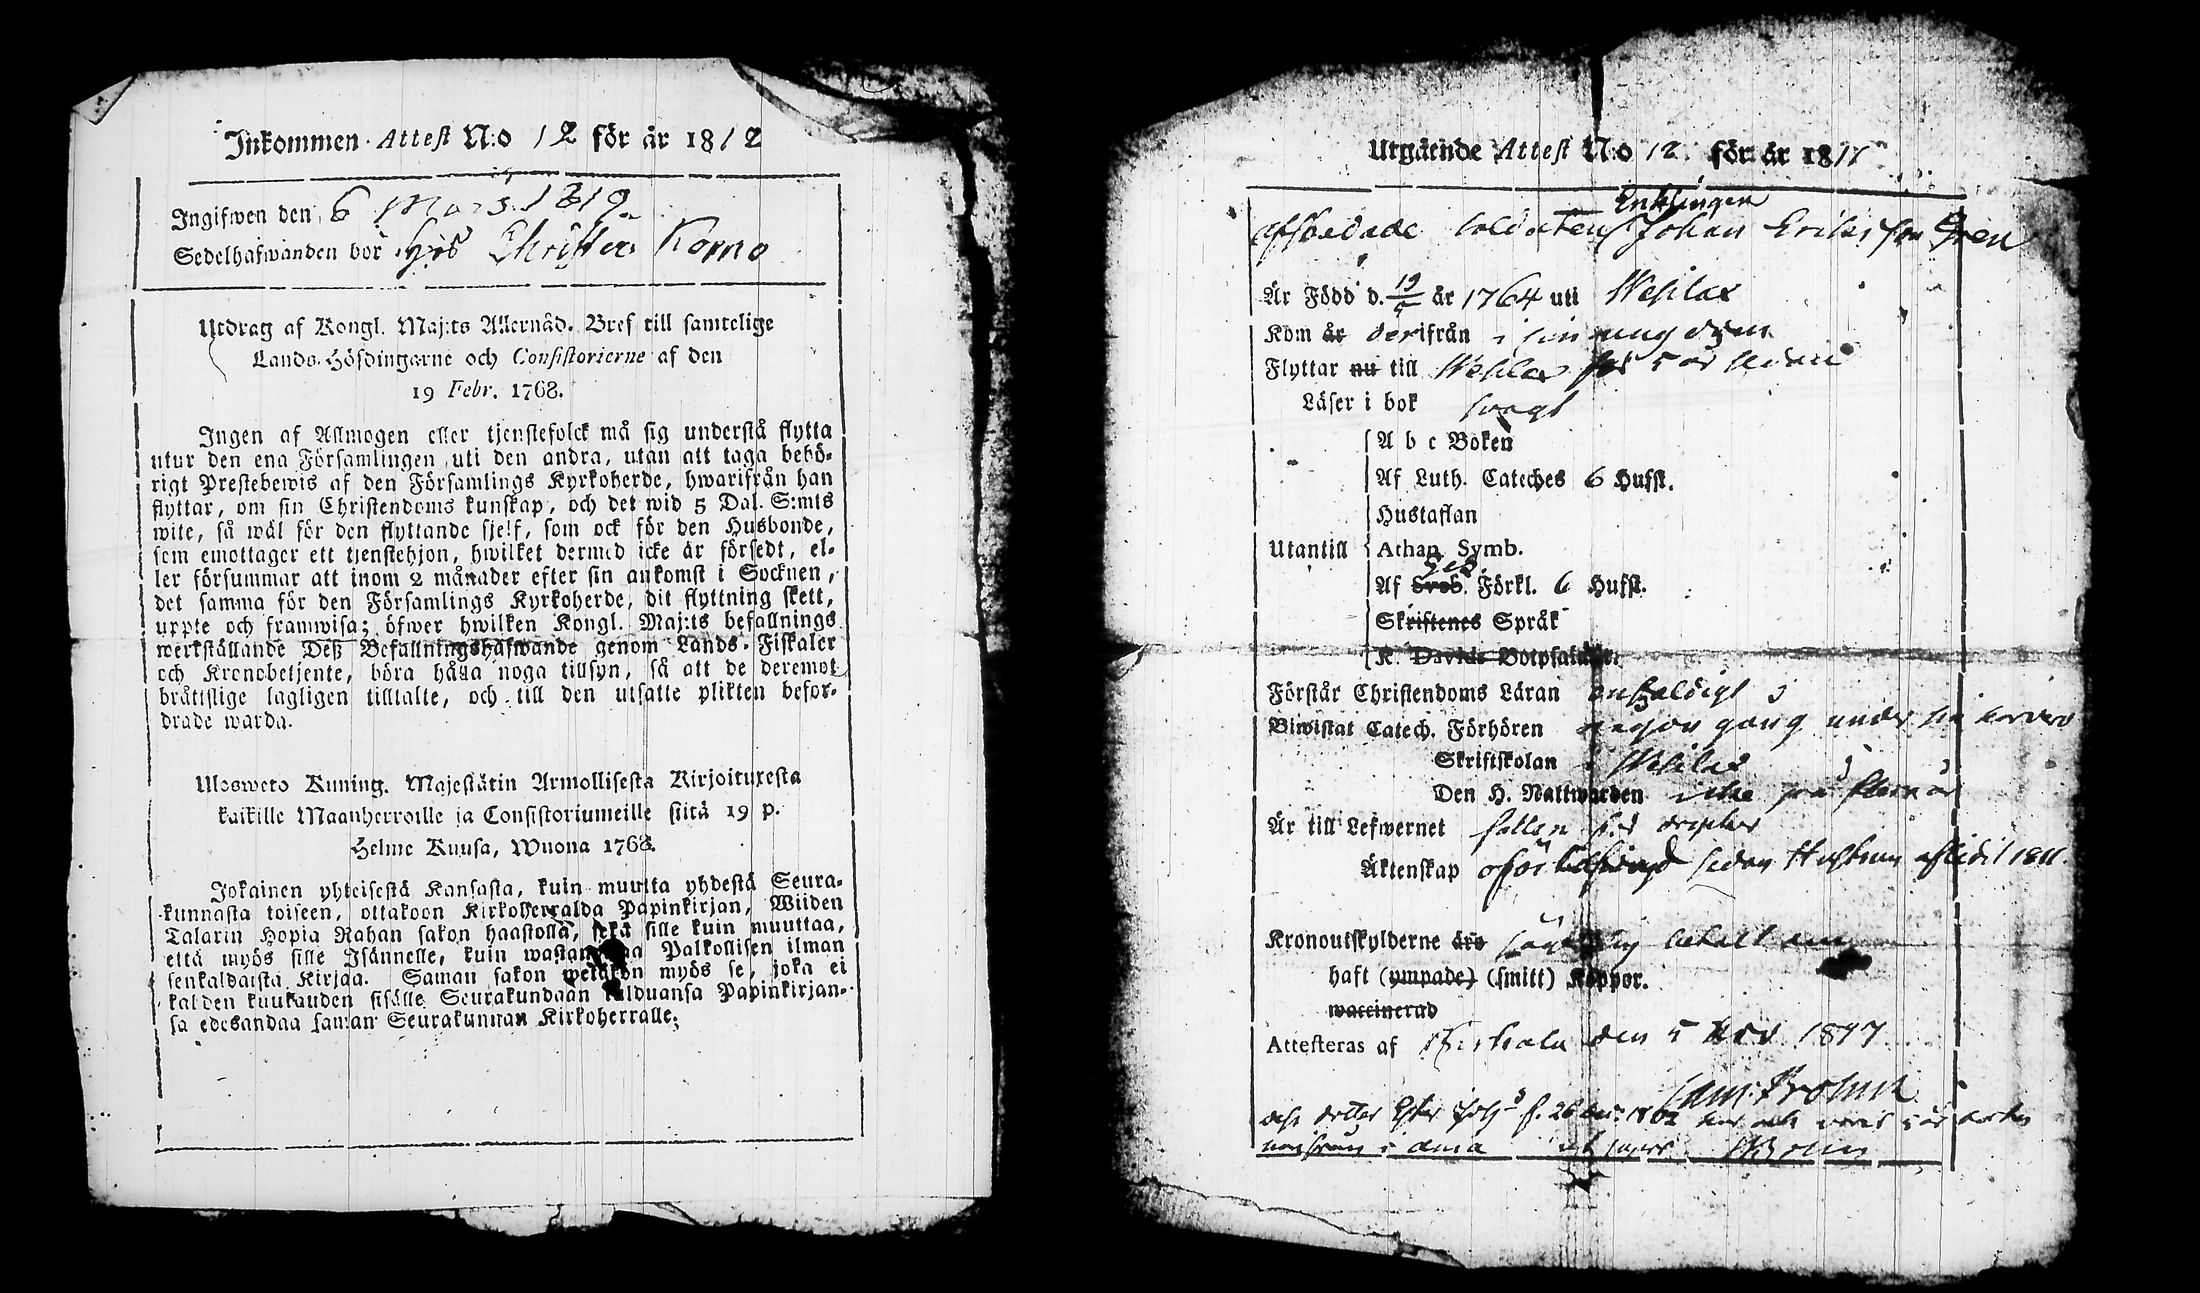 Inkommen Attest N:o 12 för år 1812
Ingifwen den 6 Mars 1819
Sedelhafwanden bor hos Christer Komo
Utdrag af Kongl. Maj:ts Allernåd. Bref till samtelige
Lands-Höfdingarne och Consistorierne af den
19 Febr. 1768.
Ingen af Allmogen eller tjenstefolck må sig understå flytta
utur den ena Församlingen uti den andra, utan att taga behö-
rigt Prestebewis af den Församlings Kyrkoherde, hwarifrån han
flyttar, om sin Christendoms kunskap, och det wid 5 Dal. S:mts
wite, så wäl för den flyttande sjelf, som ock för den Husbonde,
som emottager ett tjenstehjon, hwilket dermed icke är försedt, el-
ler försummar att inom 2 månader efter sin ankomst i Socknen,
det samma för den Församlings Kyrkoherde, dit flyttning skett,
uppte och framwisa; öfwer hwilken Kongl. Maj:ts befallnings
werkställande Deß Befallningshafwande genom Lands-Fiskaler
och Kronobetjente, böra hålla noga tillsyn, så att de deremot
bråttslige lagligen tilltalte, och till den utsatte plikten befor-
drade warda.
Ulosweto Kuning. Majestätin Armollisesta Kirjoituxesta
kaikille Maanherroille ja Consistoriumeille siitä 19 p.
Helme Kuusa, Wuona 1768.
Jokainen yhteisestä Kansasta, kuin muutta yhdestä Seura-
kunnasta toiseen, ottakoon Kirkoherralda Papinkirjan, Wiiden
Talarin Hopia Rahan sakon haastolla, sekä sille kuin muuttaa,
että myös sille Isännelle, kuin Palkollisen ilman
senkaldaista Kirjaa. Saman sakon wetäkön myös se, joka ei
kahden kuukauden sisälle Seurakundaan tulduansa Papinkirjan-
sa edesandaa saman Seurakunnan Kirkoherralle;
Utgående Attest N:o 12 för år 1817
Enklingen
afskedade soldaten Johan Eriksson Gren
Är Född d. 19 år 1764 uti Wesilax
Kom år derifrån i sin ungdom
Flyttar nu till Wesilax för 5 år sedan
Läser i bok svagt
A b c Boken
Af Luth. Cateches 6 Hufst.
Hustaflan
Utantill Athan. Symb.
Af Sveb. Förkl. 6 Hufst.
Skriftenes Språk
K. Davids Botpsalmer.
Förstår Christendoms Läran enfaldigt
Biwistat Catech. Förhören någon gång under
Skriftskolan i Wesilax
Den H. Nattwarden icke på flera år
Är till Lefwernet fallen för
Äktenskap oförhindrad sedan Hustrun aflidit 1811.
Kronoutskylderne äro
haft (ympade) (smitt) Koppor.
waccinerad
Attesteras af den 5 Nov 1817